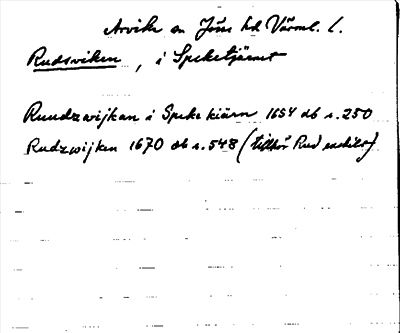 Arvika sn Jösse hd Värml. l.
Rudsviken, i Speketjärnet
Ruudzwijkan i Spekekiärn 1654 db s. 250
Rudzwijken 1670 db s. 548 (tillhör Rud